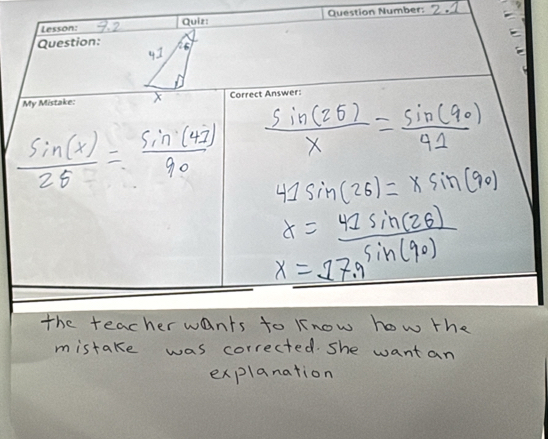 Lesson: 7.2 Quiz: Question Number: 2.1
Question:
41
26
x
My Mistake: Correct Answer:
sin(x)/26 = sin(41)/90
sin(26)/x = sin(90)/41
41 sin(26) = x sin(90)
x = 41 sin(26)/sin(90)
x = 17.9
the teacher wants to know how the
mistake was corrected. She want an
explanation